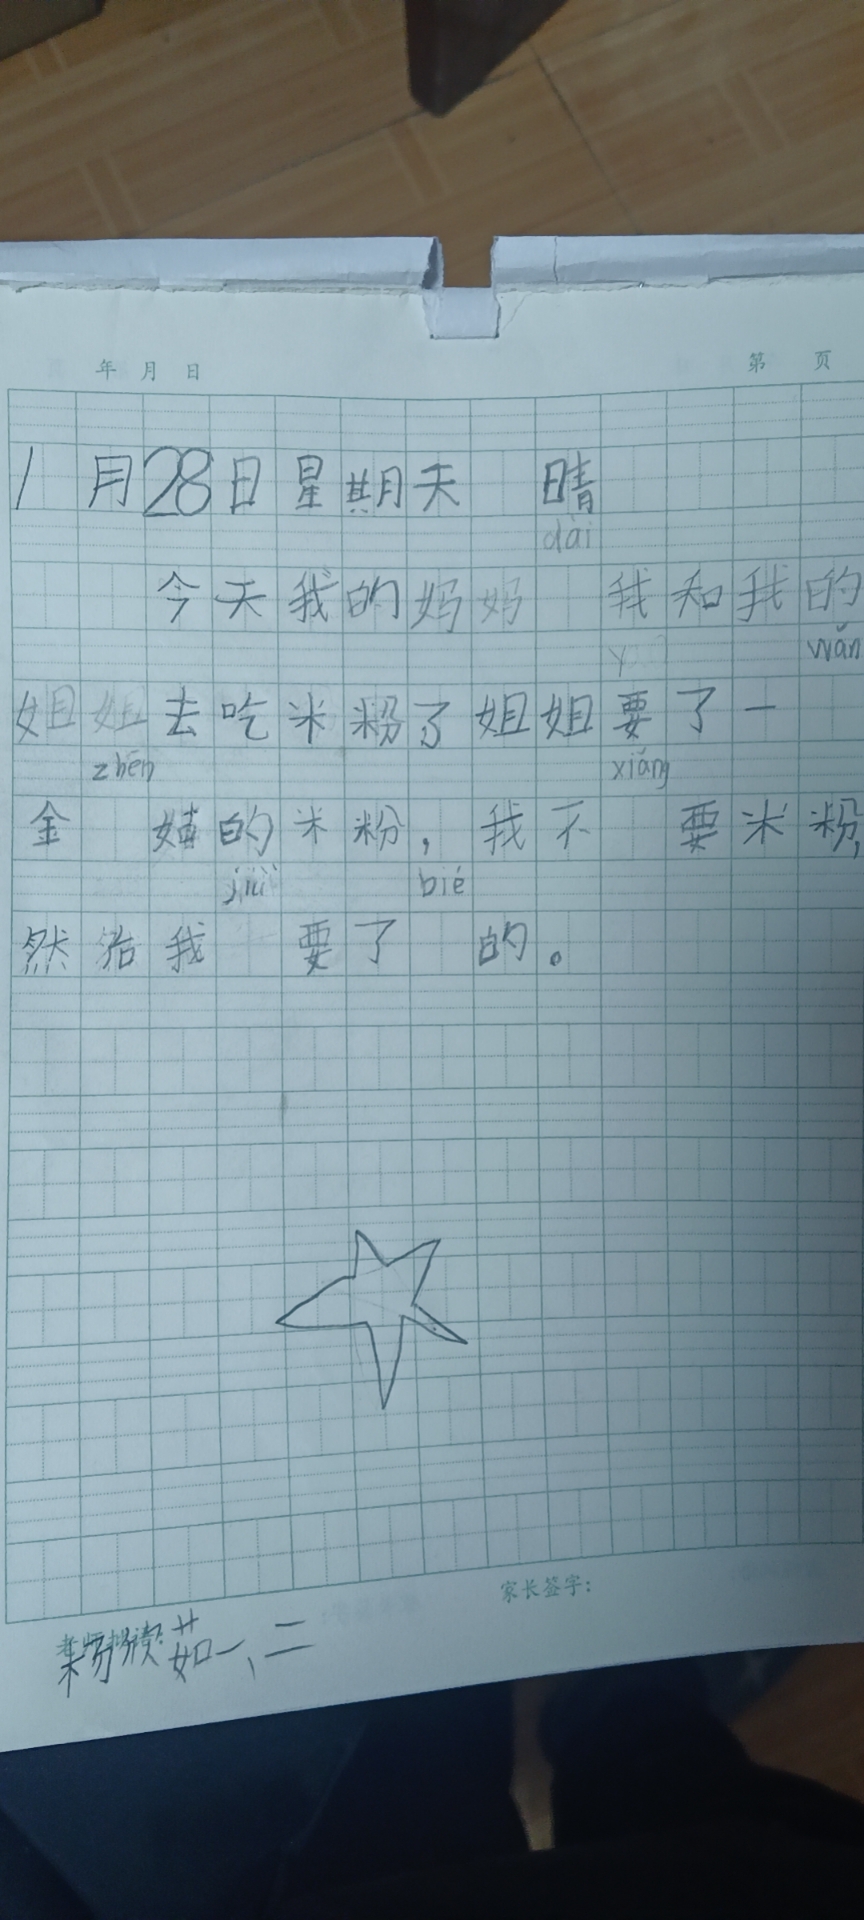 年 月 日 第 页
1月28日星期天 晴
dài
今天我的妈妈 我和我的
wǎn
姐姐去吃米粉了姐姐要了一
zhēn xiǎng
金 的米粉，我不 要米粉，
jiù bié
然 我 要了 的。
家长签字：
茹一、二